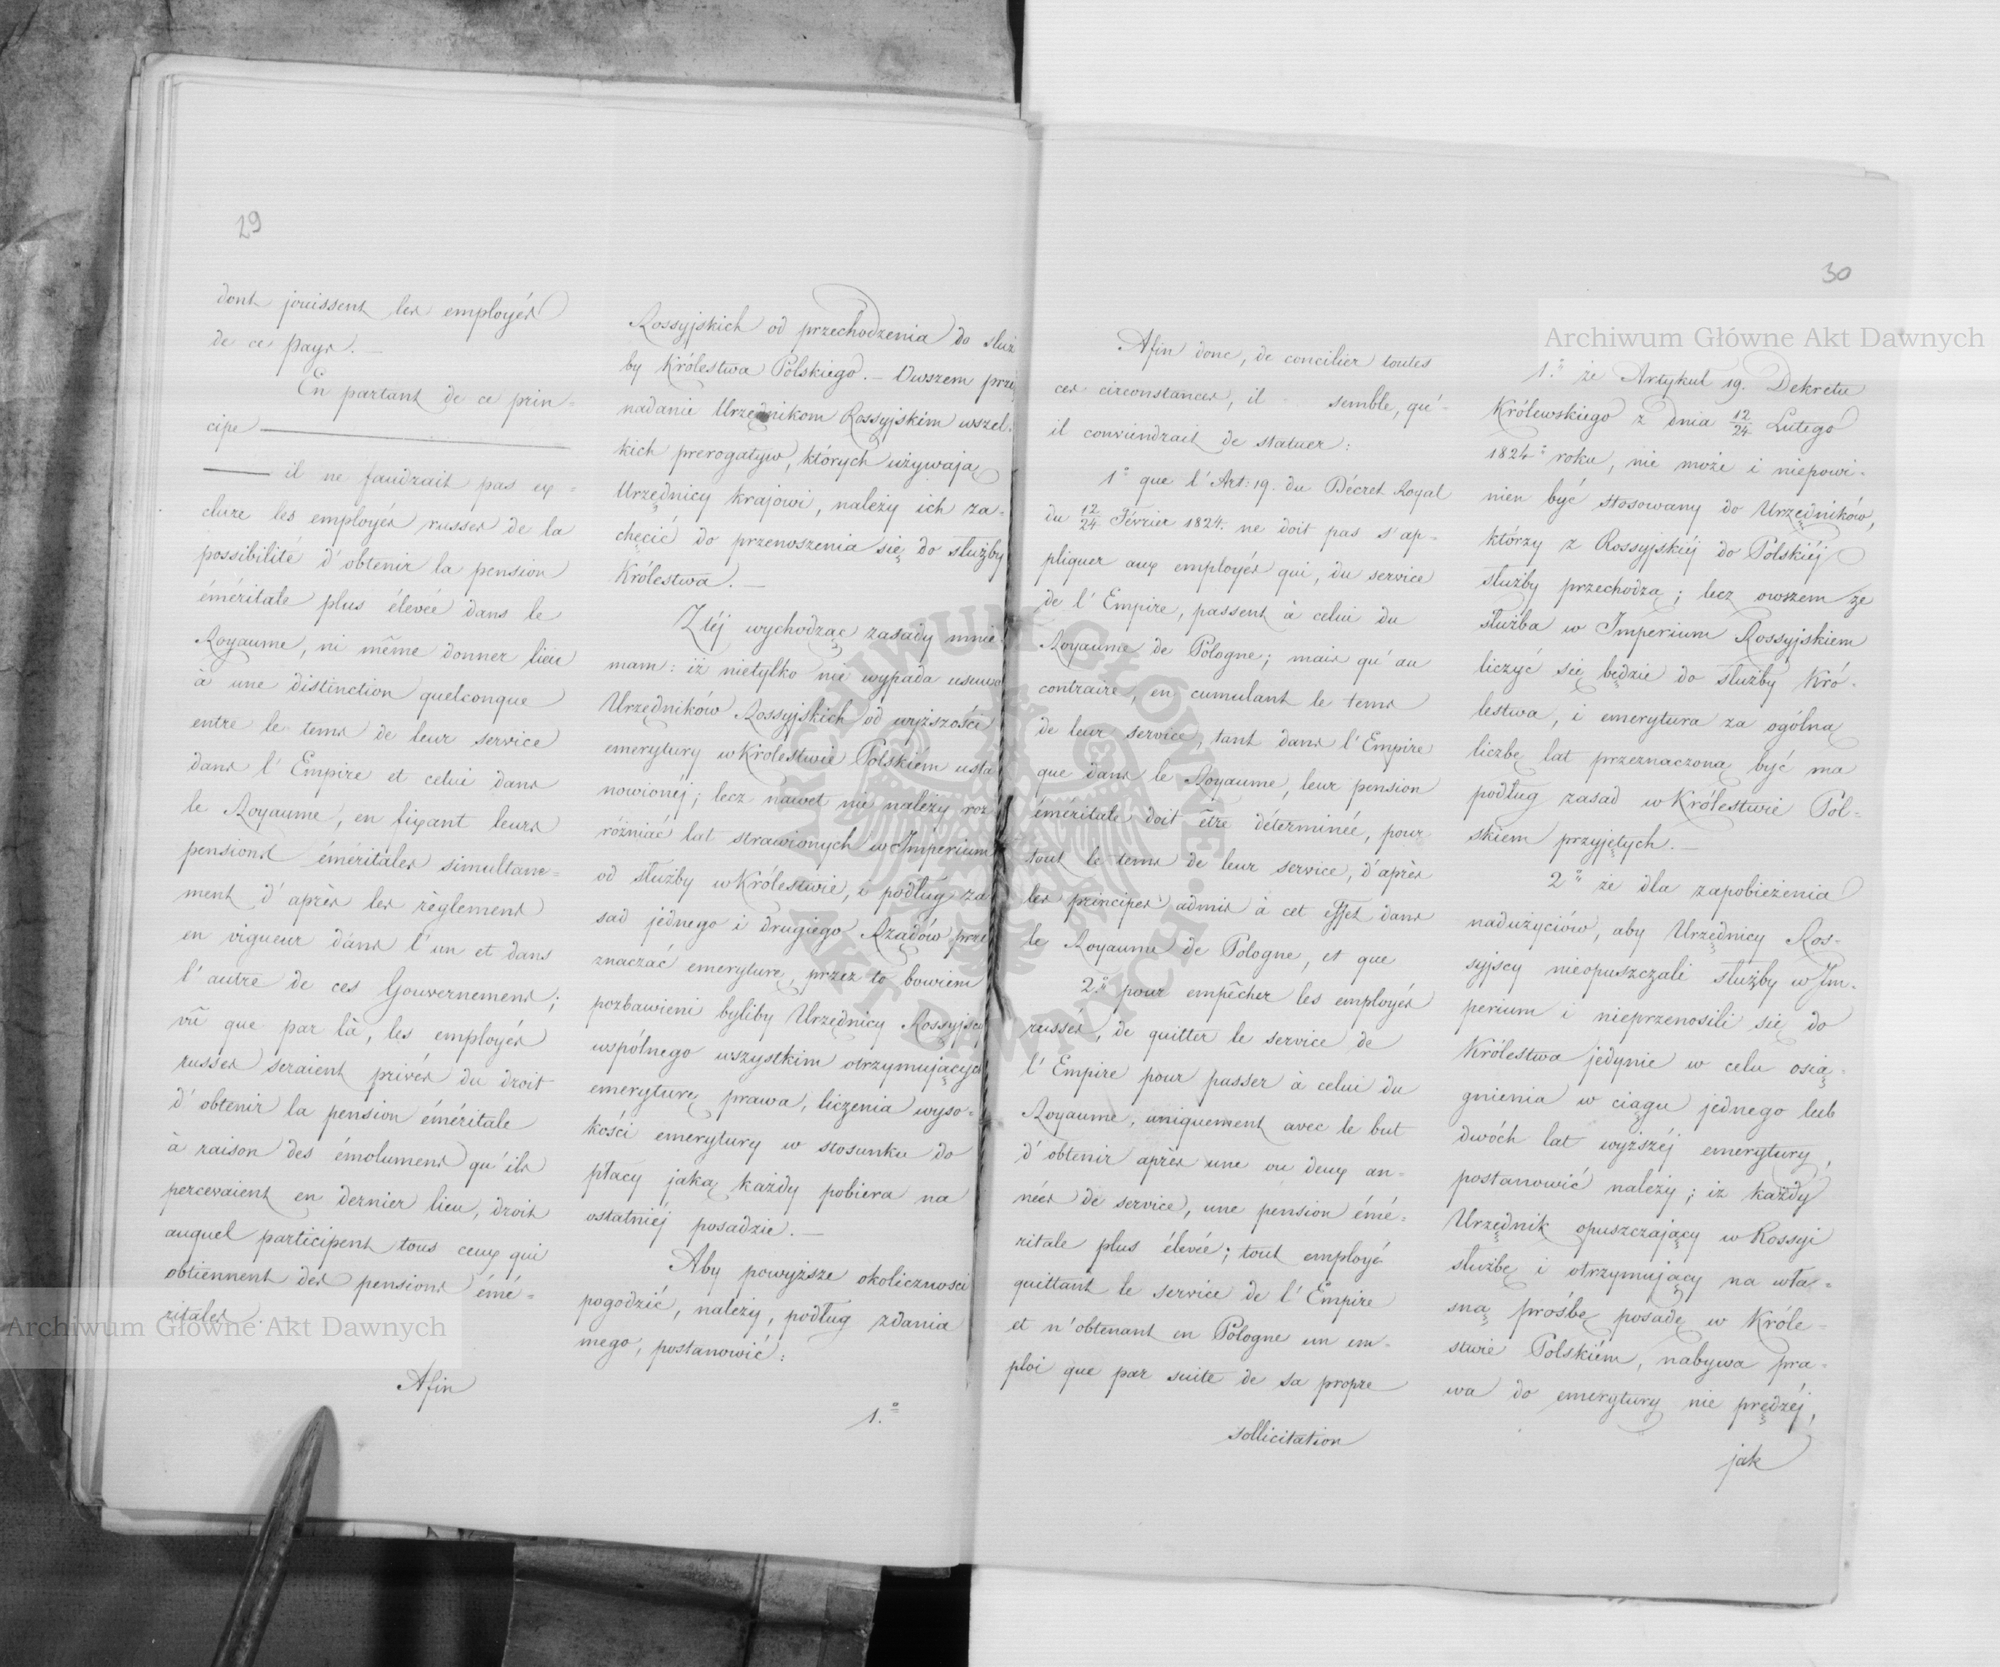 29
dont jouissent les employés
de ce pays. —
En partant de ce prin-
cipe —
— il ne faudrait pas ex-
clure les employés russes de la
possibilité d'obtenir la pension
éméritale plus élevée dans le
Royaume, ni même donner lieu
à une distinction quelconque
entre le tems de leur service
dans l'Empire et celui dans
le Royaume, en fixant leurs
pensions éméritales simultane-
ment d'après les règlemens
en vigueur dans l'un et dans
l'autre de ces Gouvernemens;
vû que par là, les employés
russes seraient privés du droit
d'obtenir la pension éméritale
à raison des émolumens qu'ils
percevaient en dernier lieu, droit
auquel participent tous ceux qui
obtiennent des pensions émé-
ritales.
Afin
Rossyjskich od przechodzenia do służ
by Królestwa Polskiego. — Owszem prze
nadanie Urzędnikom Rossyjskim wszel-
kich prerogatyw, których używają
Urzędnicy krajowi, należy ich za-
chęcić do przenoszenia się do służby
Królestwa. —
Z téj wychodząc zasady mnie
mam: iż nietylko nie wypada usuwa
Urzędników Rossyjskich od wyższości
emerytury w Królestwie Polskiém usta
nowionéj; lecz nawet nie należy roz
różniać lat strawionych w Imperium
od służby w Królestwie, i podług za
sad jednego i drugiego Rządów prze
znaczać emeryturę, przez to bowiem
pozbawieni byliby Urzędnicy Rossyjscy
wspólnego wszystkim otrzymujących
emeryturę prawa, liczenia wyso-
kości emerytury w stosunku do
płacy jaką każdy pobiera na
ostatniéj posadzie. —
Aby powyższe okoliczności
pogodzić, należy, podług zdania
mego, postanowić:
1.º
30
Afin donc, de concilier toutes
ces circonstances, il semble, qu'-
il conviendrait de statuer:
1º que l'Art: 19. du Décret Royal
du 12/24 Février 1824. ne doit pas s'ap-
pliquer aux employés qui, du service
de l'Empire, passent à celui du
Royaume de Pologne; mais qu'au
contraire, en cumulant le tems
de leur service, tant dans l'Empire
que dans le Royaume, leur pension
éméritale doit être déterminée, pour
tout le tems de leur service, d'après
les principes admis à cet effet dans
le Royaume de Pologne, et que
2.º pour empêcher les employés
russes, de quitter le service de
l'Empire pour passer à celui du
Royaume, uniquement avec le but
d'obtenir après une ou deux an-
nées de service, une pension émé-
ritale plus élevée; tout employé
quittant le service de l'Empire
et n'obtenant en Pologne un em-
ploi que par suite de sa propre
sollicitation
1.º że Artykuł 19. Dekretu
Królewskiego z dnia 12/24 Lutego
1824º roku, nie może i niepowi-
nien być stosowany do Urzędników,
którzy z Rossyjskiéj do Polskiéj
służby przechodzą; lecz owszem że
służba w Imperium Rossyjskiem
liczyć się będzie do służby Kró-
lestwa, i emerytura za ogólną
liczbę lat przeznaczoną być ma
podług zasad w Królestwie Pol-
skiem przyjętych. —
2º że dla zapobieżenia
nadużyciów, aby Urzędnicy Ros-
syjscy nieopuszczali służby w Im-
perium i nieprzenosili się do
Królestwa jedynie w celu osią-
gnienia w ciągu jednego lub
dwóch lat wyższéj emerytury,
postanowić należy; iż każdy
Urzędnik opuszczający w Rossyi
służbę i otrzymujący na wła-
sną prośbę posadę w Króle-
stwie Polskiém, nabywa pra-
wa do emerytury nie prędzéj,
jak
Archiwum Główne Akt Dawnych
Archiwum Główne Akt Dawnych
ARCHIWUM GŁÓWNE AKT DAWNYCH